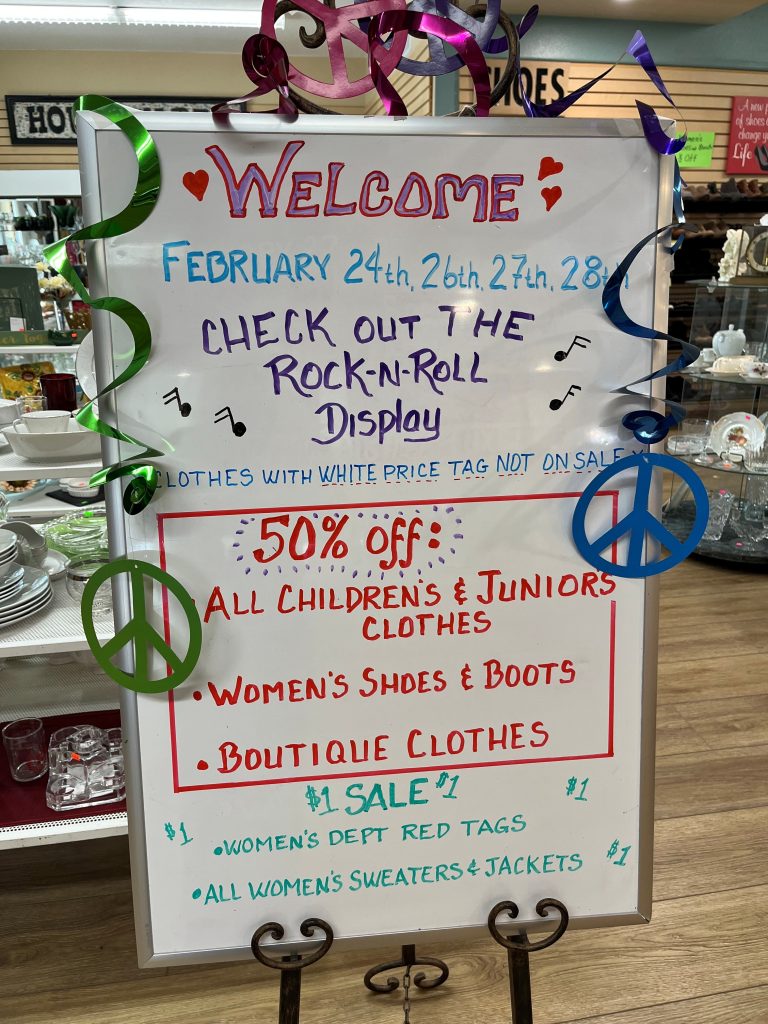 SHOES
HOU
A new p
of shoes c
change yo
Life
$ Off
WELCOME
FEBRUARY 24th, 26th, 27th, 28th
CHECK OUT THE
ROCK-N-ROLL
Display
CLOTHES WITH WHITE PRICE TAG NOT ON SALE
50% off:
• ALL CHILDREN'S & JUNIOR'S
CLOTHES
• WOMEN'S SHOES & BOOTS
• BOUTIQUE CLOTHES
$1 SALE $1 $1
$1 • WOMEN'S DEPT RED TAGS
• ALL WOMEN'S SWEATERS & JACKETS $1